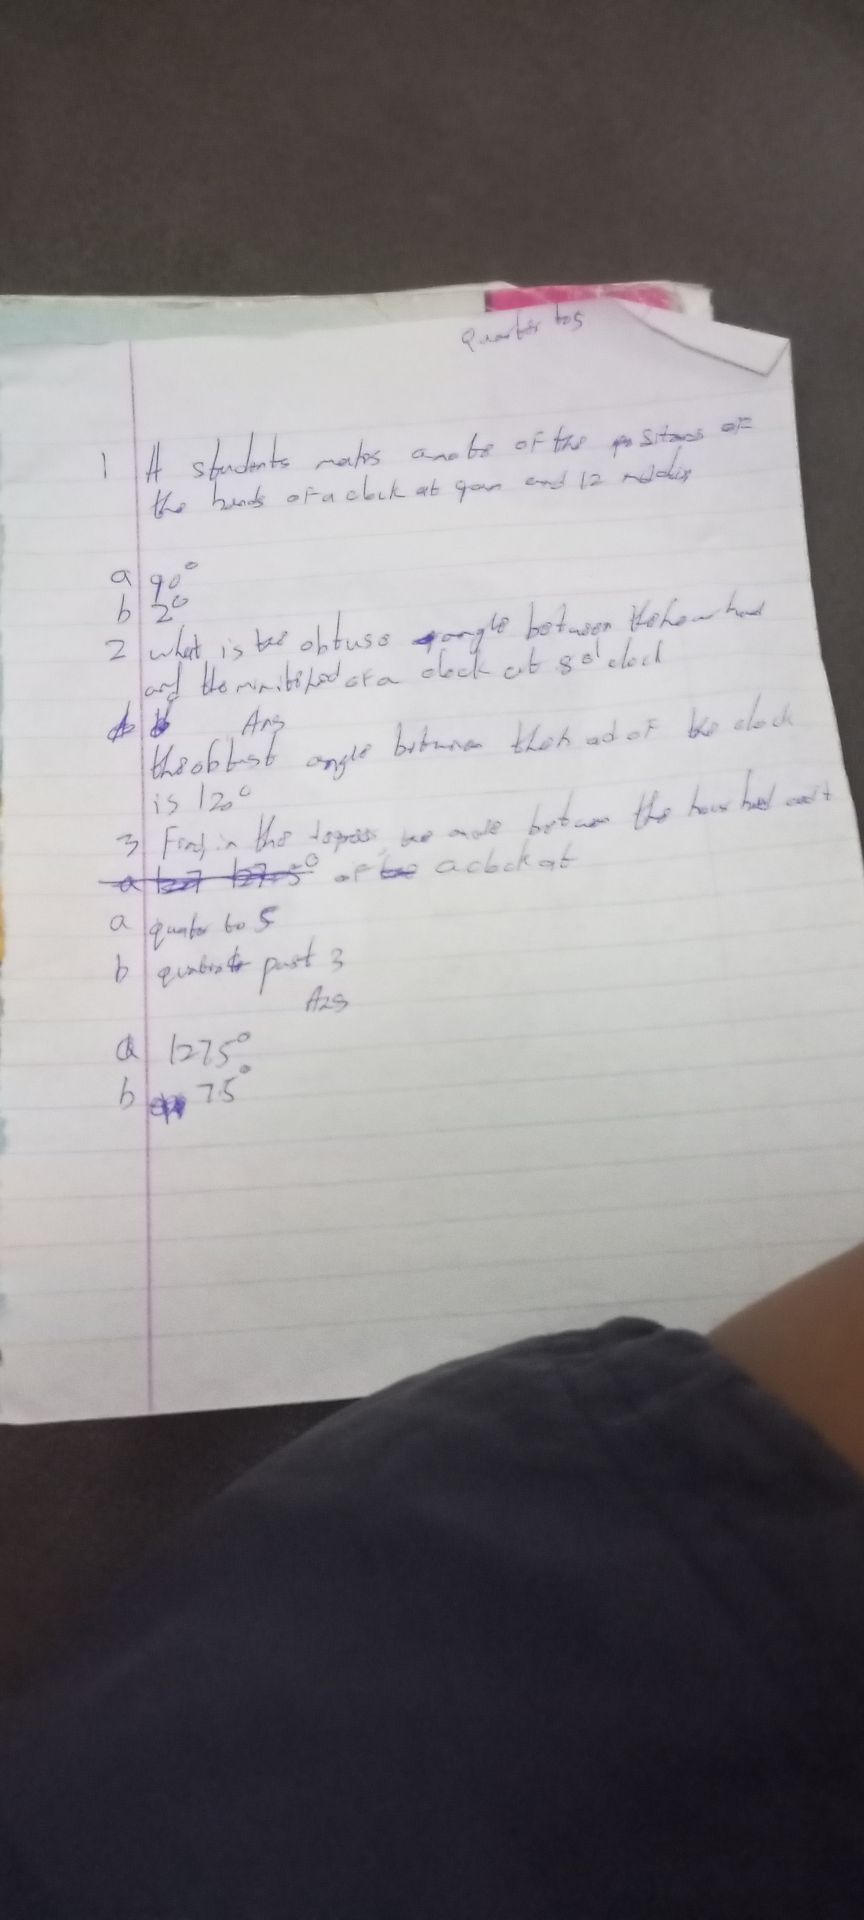 Quarter to 5
1 A students makes a note of the positions of
the hands of a clock at 9am and 12
a 90°
b 2°
2 what is the obtuse angle between the hour hand
and the of a clock at 8 o'clock
Ans
the angle between the of the clock
is 120°
3 Find, in the degrees, the between the hour hand
of a clock at
a quater to 5
b past 3
Ans
a 1275°
b 7.5°